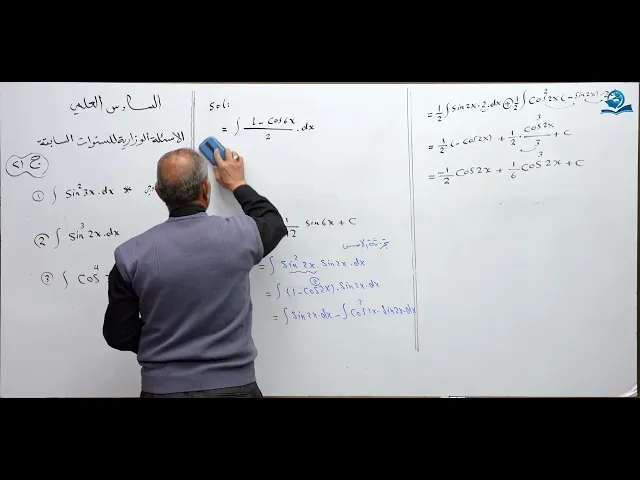 السادس العلمي
الاسئلة الوزارية للسنوات السابقة
ج ٢١
① ∫ Sin²3x.dx *
② ∫ Sin³2x.dx
③ ∫ Cos⁴
Sol:
= ∫ (1 - Cos6x)/2 .dx
Sin6x + C
= ∫ Sin²2x . Sin2x.dx
= ∫ (1-Cos²2x).Sin2x.dx
= ∫ Sin2x.dx - ∫ Cos²2x.Sin2x.dx
= 1/2 ∫ Sin2x.2.dx + 1/2 ∫ Cos²2x(-Sin2x).2
= 1/2 (-Cos2x) + 1/2 . Cos³2x/3 + C
= -1/2 Cos2x + 1/6 Cos³2x + C